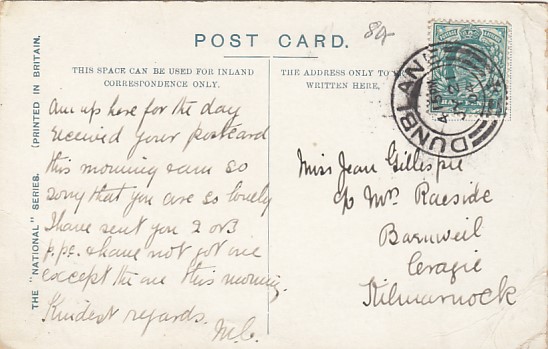 84
POST CARD.
THIS SPACE CAN BE USED FOR INLAND
CORRESPONDENCE ONLY.
THE ADDRESS ONLY TO
WRITTEN HERE.
THE "NATIONAL" SERIES. (PRINTED IN BRITAIN.
DUNBLANE
4 15 PM
Am up here for the day
received your postcard
this morning & am so
sorry that you are so lonely
I have sent you 2 or 3
p.pc. & have not got one
except the one this morning.
Kindest regards.
M.C.
Miss Jean Gillespie
c/o Mrs Raeside
Barnweil
Craigie
Kilmarnock